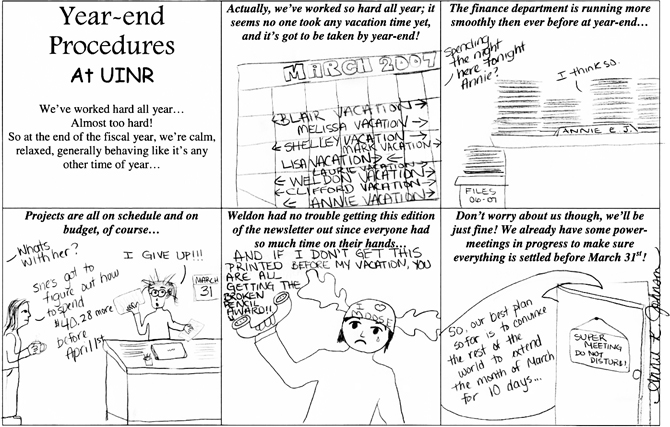 Year-end
Procedures
At UINR
We've worked hard all year…
Almost too hard!
So at the end of the fiscal year, we're calm,
relaxed, generally behaving like it's any
other time of year…
Actually, we've worked so hard all year; it
seems no one took any vacation time yet,
and it's got to be taken by year-end!
MARCH 2007
BLAIR VACATION
MELISSA VACATION
SHELLEY VACATION
MARK VACATION
LISA VACATION
LAURIE VACATION
WELDON VACATION
CLIFFORD VACATION
ANNIE VACATION
The finance department is running more
smoothly then ever before at year-end…
Spending
the night
here tonight
Annie?
I think so.
ANNIE E J.
FILES
06-07
Projects are all on schedule and on
budget, of course…
Whats
with her?
She's got to
figure out how
to spend
$40.28 more
before
April 1st
I GIVE UP!!!
MARCH
31
Weldon had no trouble getting this edition
of the newsletter out since everyone had
so much time on their hands…
AND IF I DON'T GET THIS
PRINTED BEFORE MY VACATION, YOU
ARE ALL
GETTING THE
BROKEN
PENCIL
AWARD!!
I ♥
MOOSE
Don't worry about us though, we'll be
just fine! We already have some power-
meetings in progress to make sure
everything is settled before March 31st!
So, our best plan
so far is to convince
the rest of the
world to extend
the month of March
for 10 days...
SUPER
MEETING
DO NOT
DISTURB!